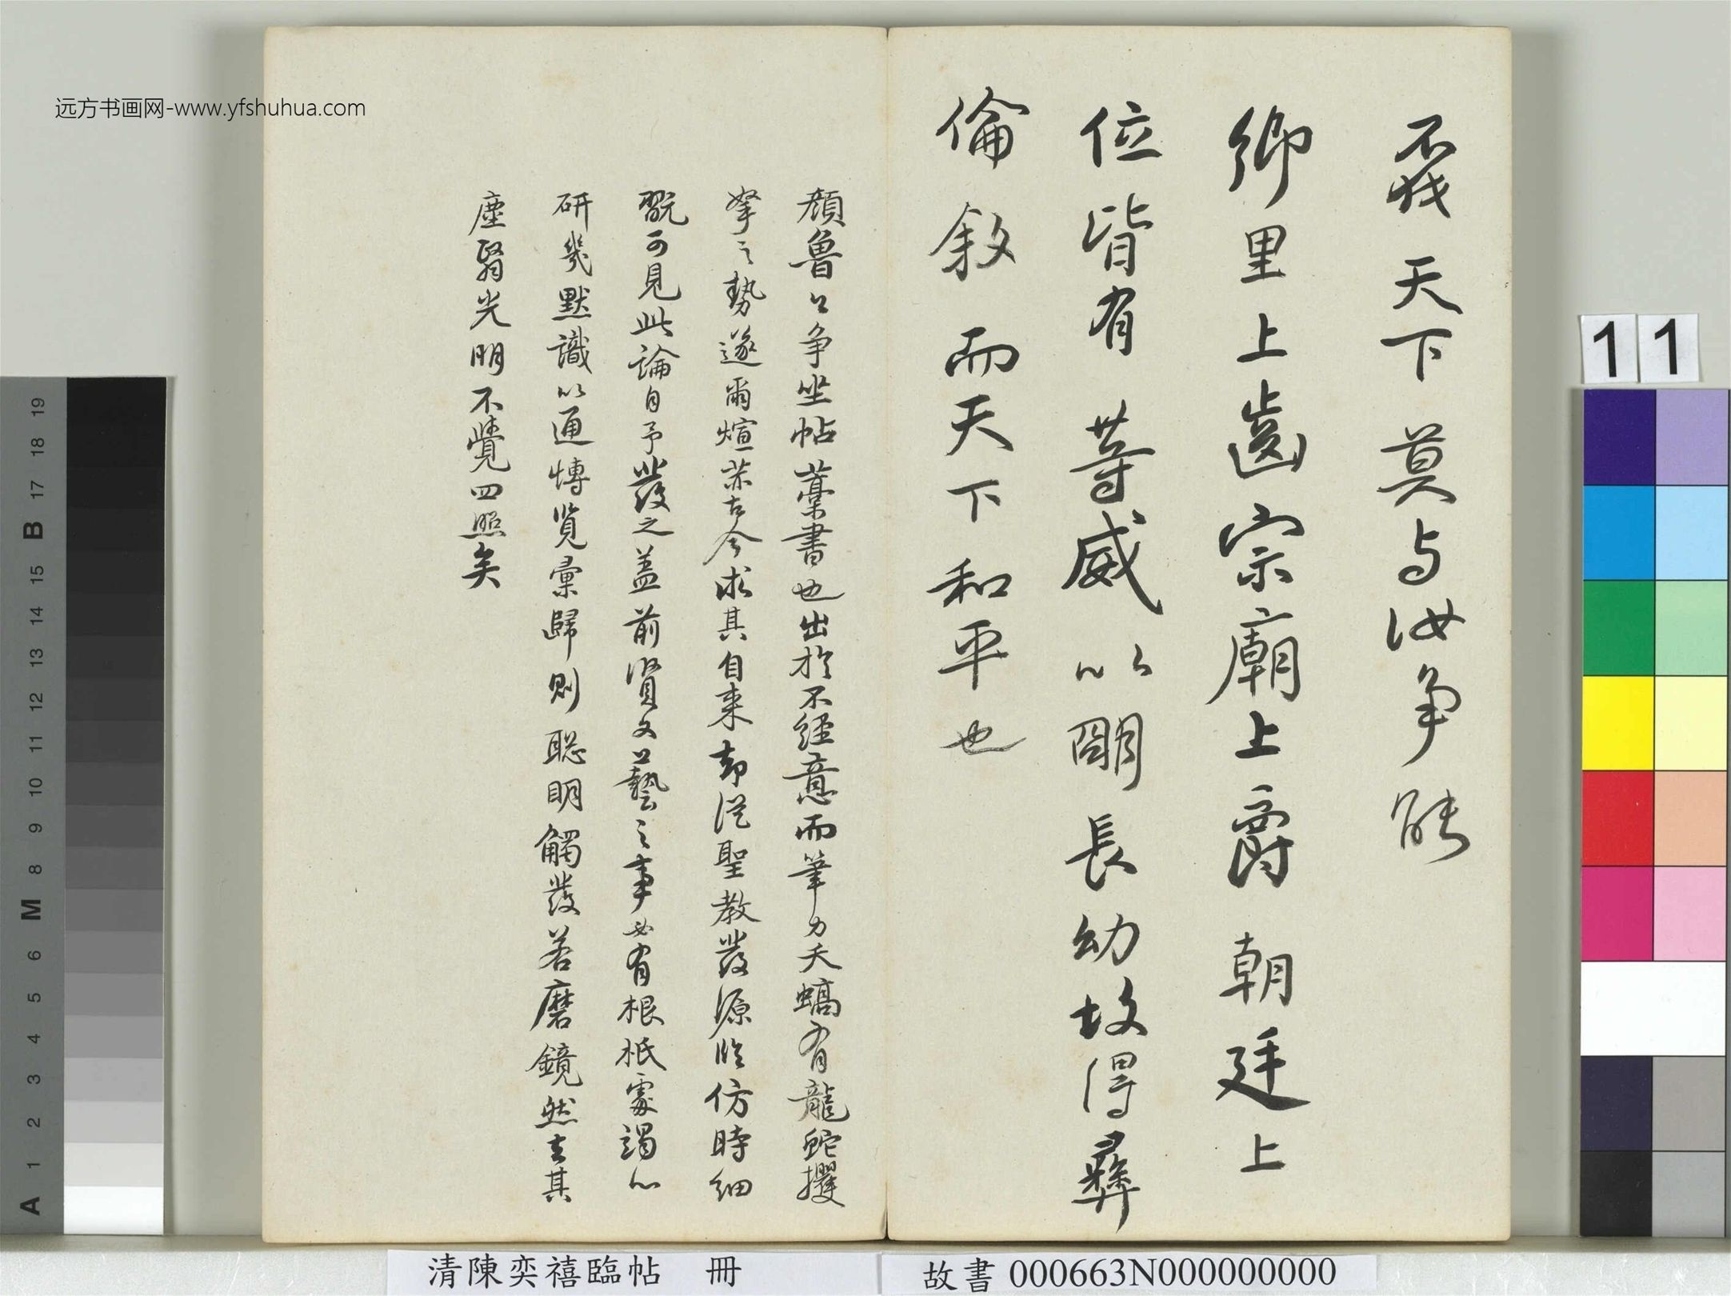 不伐天下莫与汝争能
鄉里上齒宗廟上爵朝廷上
位皆有等威以明長幼故得彝
倫敘而天下和平也
顏魯公争坐帖藁書也出於不經意而筆力夭蟜有龍蛇攫
拏之勢遂爾煊赫古今求其自来却從聖教發源臨仿時細
翫可見此論自予發之盖前賢文藝之事必有根柢處竭心
研幾默識以通博覧彙歸則聡明觸發若磨鏡然去其
塵翳光明不覺四照矣
远方书画网-www.yfshuhua.com
11
清陳奕禧臨帖 冊
故書 000663N000000000
A 1 2 3 4 5 6 M 8 9 10 11 12 13 14 15 B 17 18 19